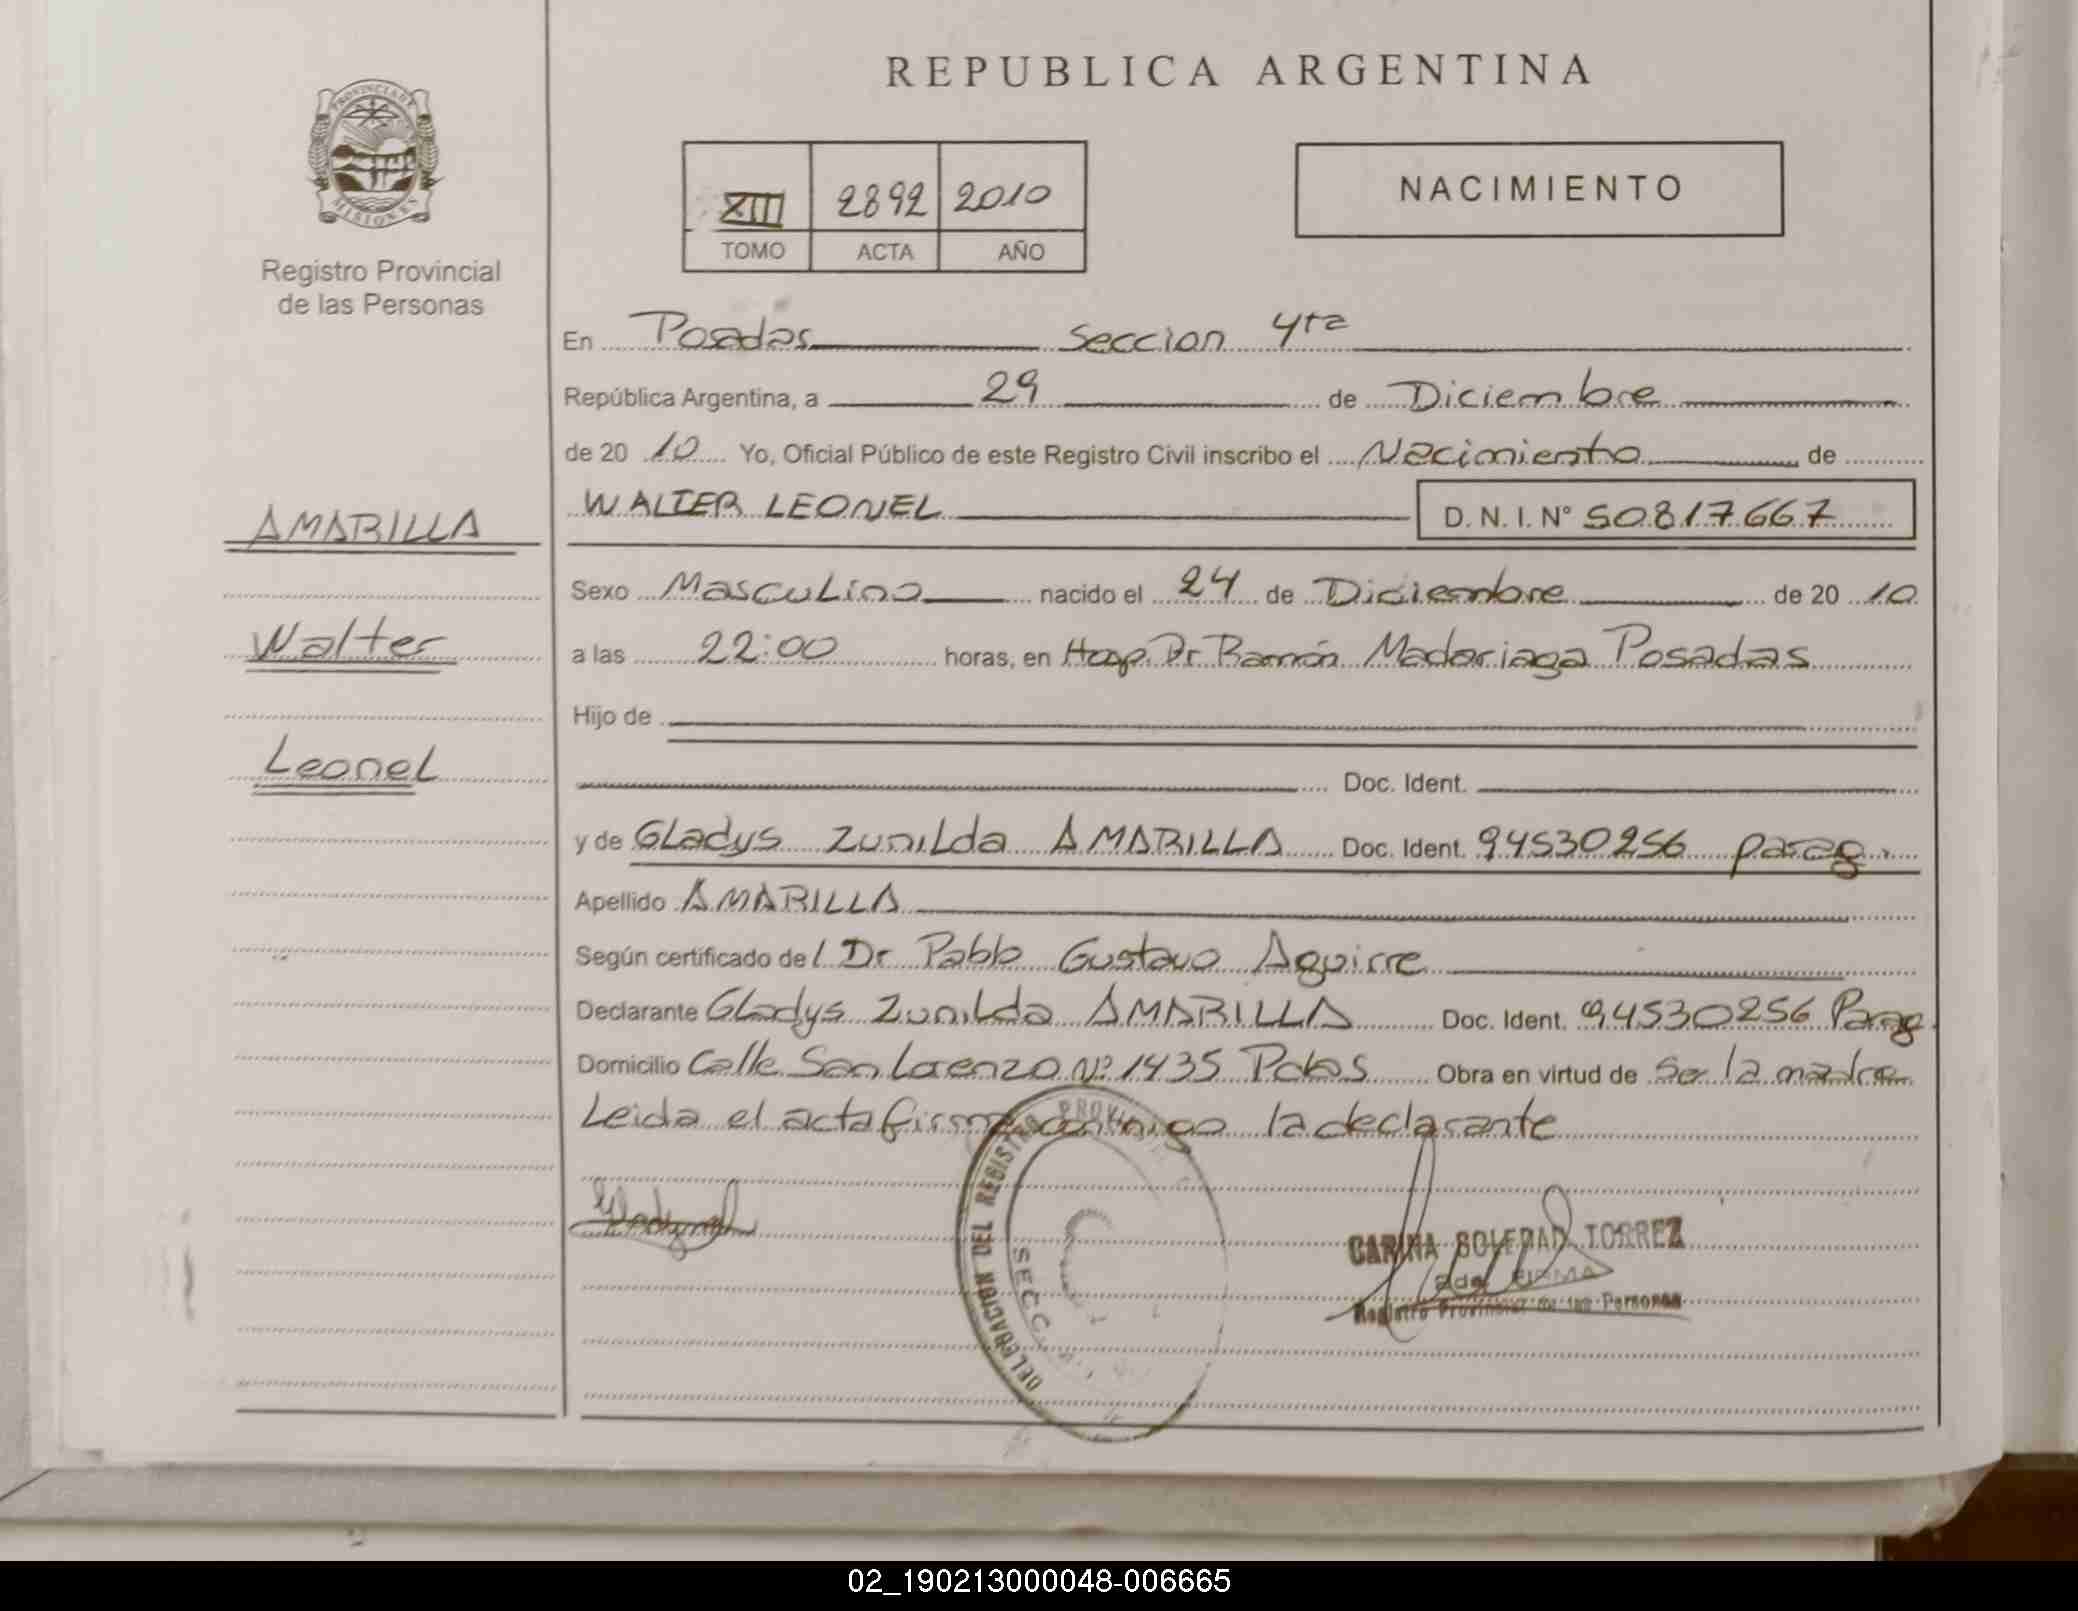 REPUBLICA ARGENTINA
PROVINCIA DE
MISIONES
Registro Provincial
de las Personas
XIII 2892 2010
TOMO ACTA AÑO
NACIMIENTO
En Posadas Seccion 4ta
República Argentina, a 29 de Diciembre
de 20 10 Yo, Oficial Público de este Registro Civil inscribo el Nacimiento de
WALTER LEONEL D. N. I. N° 50817667
AMARILLA
Walter
Leonel
Sexo Masculino nacido el 24 de Diciembre de 20 10
a las 22:00 horas, en Hosp. Dr Ramón Madariaga Posadas
Hijo de
Doc. Ident.
y de Gladys Zunilda AMARILLA Doc. Ident. 94530256 parag.
Apellido AMARILLA
Según certificado del Dr Pablo Gustavo Aguirre
Declarante Gladys Zunilda AMARILLA Doc. Ident. 94530256 Parag
Domicilio Calle San Lorenzo Nº 1435 Pdas Obra en virtud de Ser la madre
Leida el acta firma conmigo la declarante
DELEGACION DEL REGISTRO PROVINCIAL
SECC
CARINA SOLEDAD TORREZ
2da FIRMA
Registro Provincial de las Personas
02_190213000048-006665